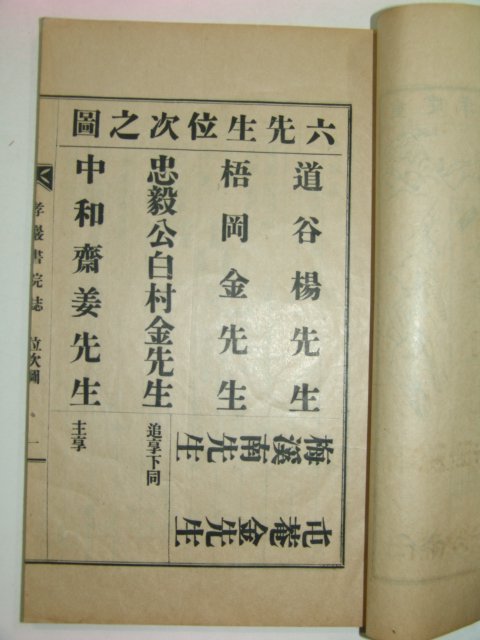 六先生位次之圖
道谷楊先生
梧岡金先生
忠毅公白村金先生
追享下同
中和齋姜先生
主享
梅溪南先生
屯菴金先生
孝巖書院誌
位次圖
一